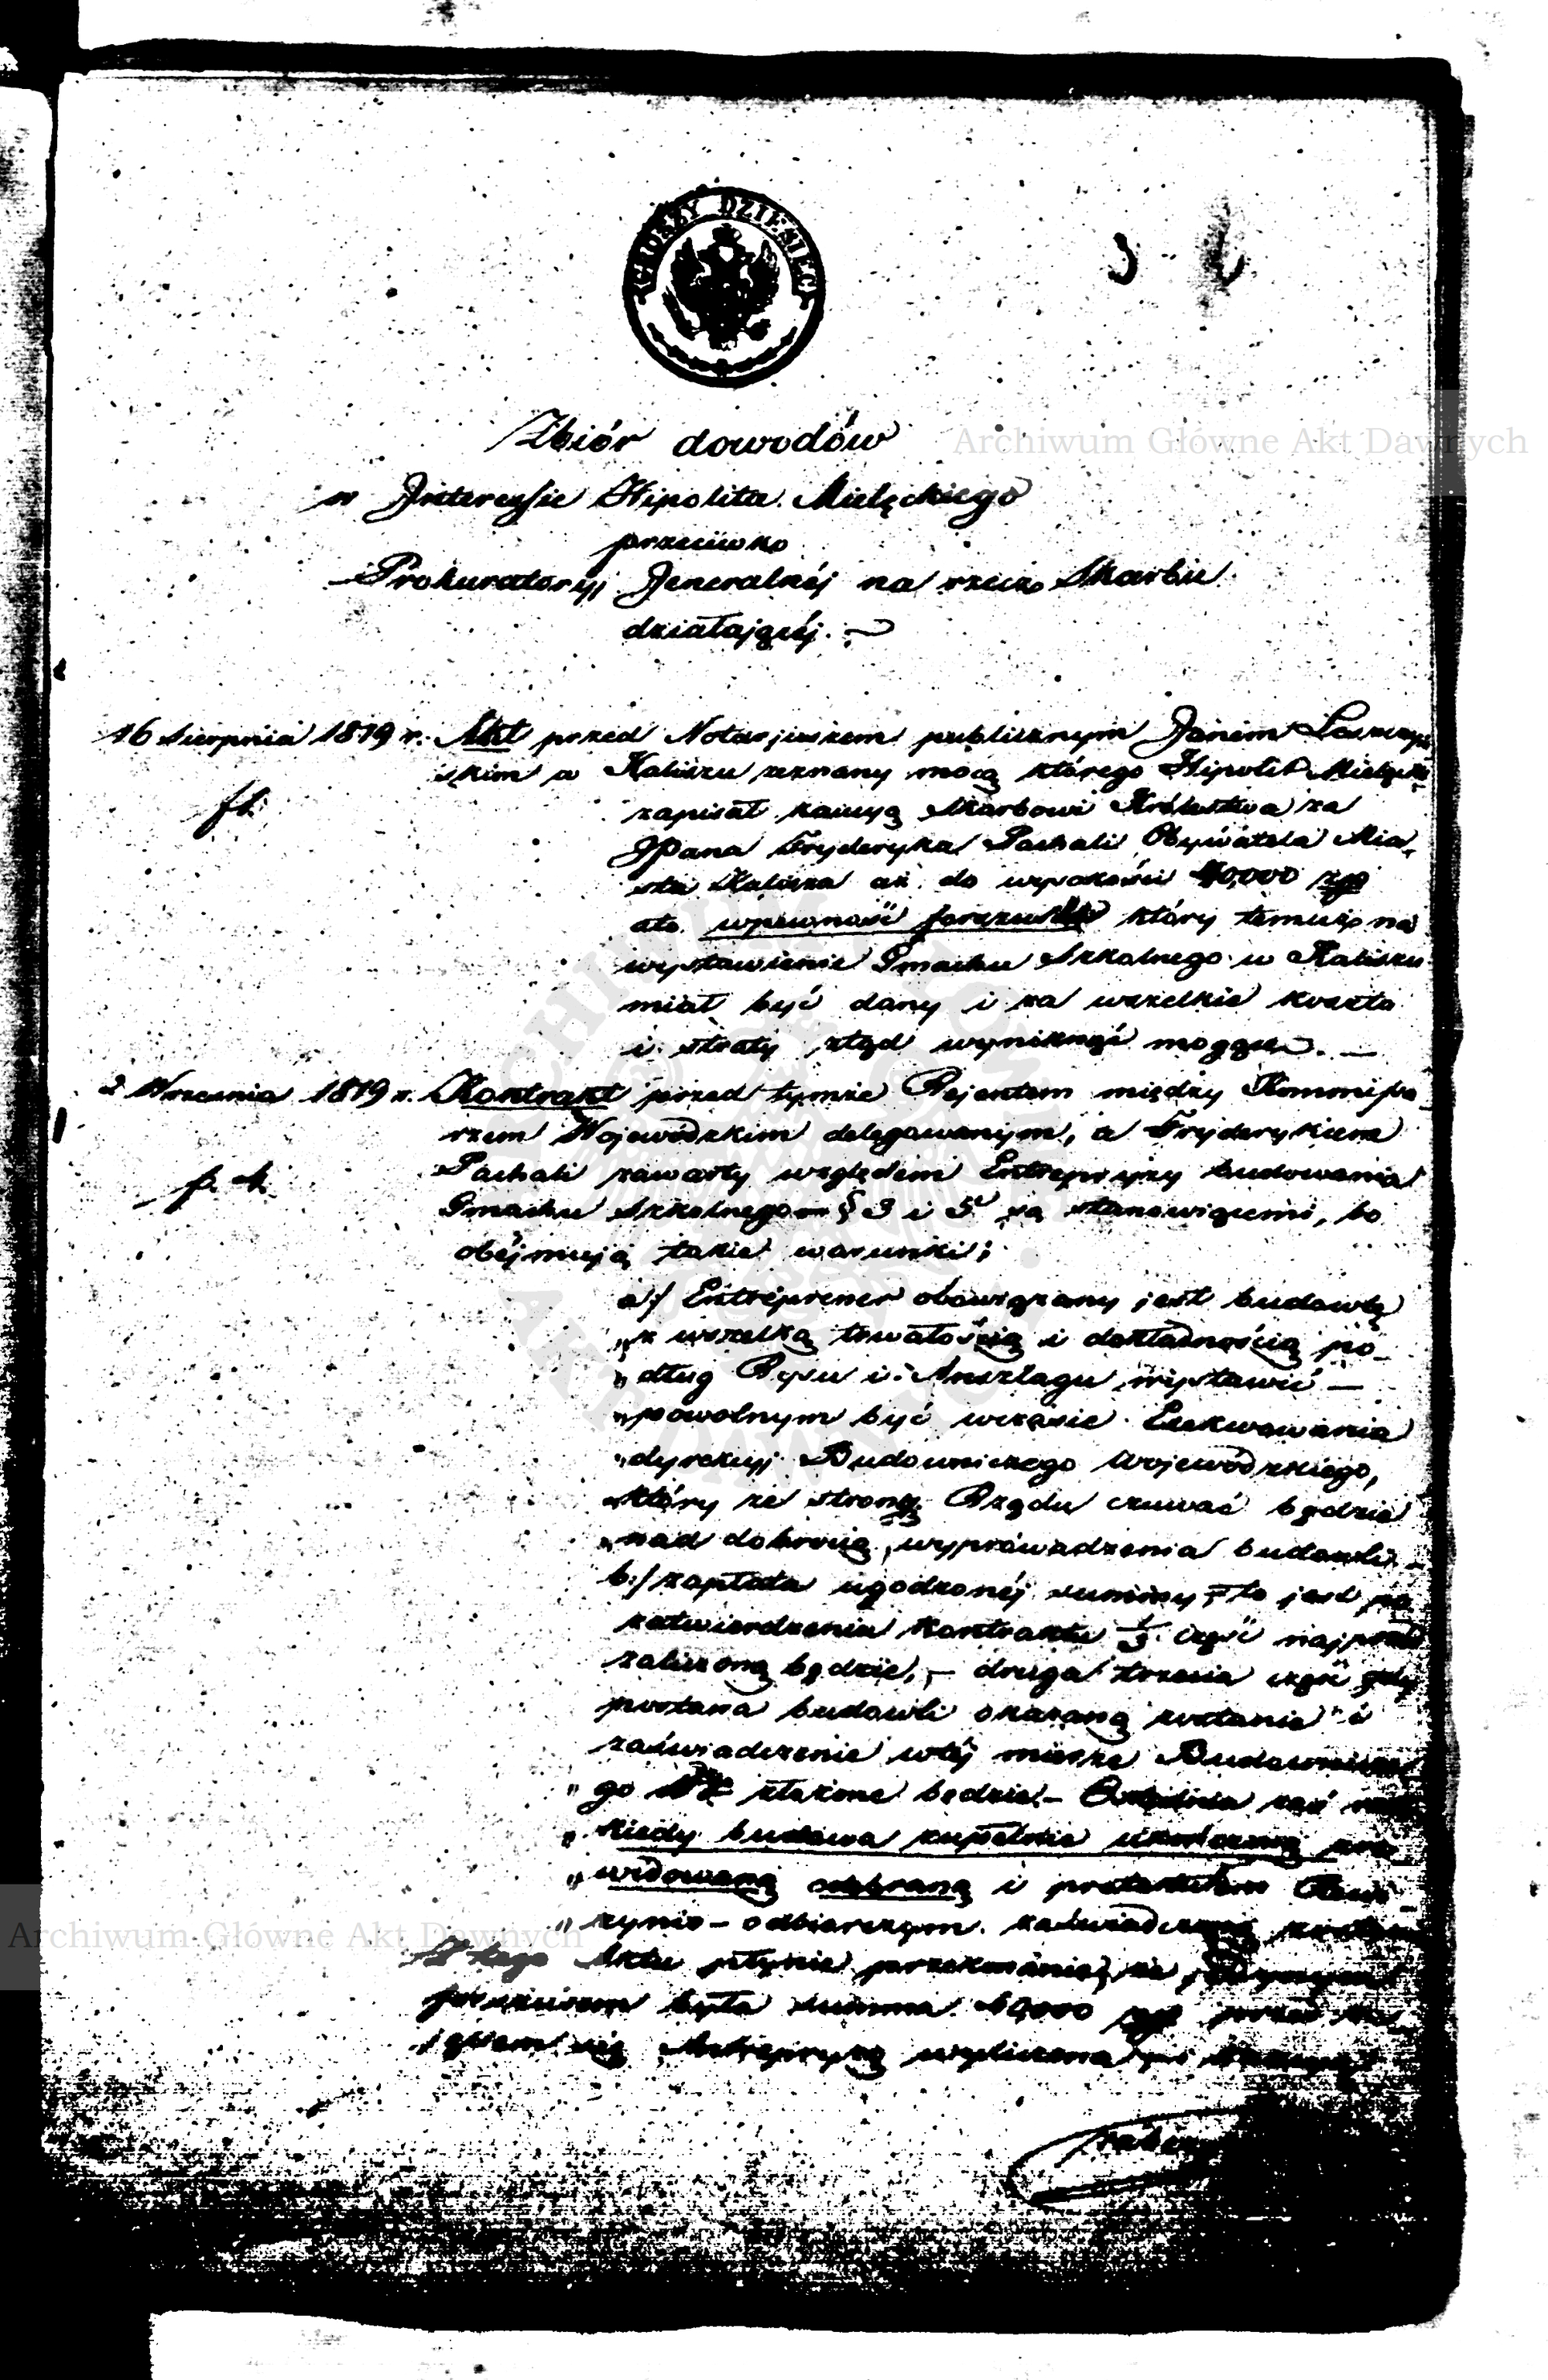 GROSZY DZIESIĘĆ
3
Zbiór dowodów
w Interessie Hipolita Mielęckiego
przeciwko
Prokuratoryi Jeneralnéj na rzecz Skarbu
działającéj.
16 Sierpnia 1819 r. Akt przed Notarjuszem publicznym Janem
skim w Kaliszu zeznany mocą którego Hipolit Mielęcki
zapisał kaucyą Skarbowi Królestwa za
JPana Fryderyka Pachali Obywatela Mia„
sta Kalisza aż do wysokości 40,000 złp
ato wpewność forszusu który temuż na
wystawienie Gmachu Szkolnego w Kaliszu
miał być dany i za wszelkie koszta
i straty ztąd wyniknąć mogące. —
2 Września 1819 r. Kontrakt przed tymże Rejentem między Kommissa
rzem Wojewódzkim delegowanym, a Fryderykiem
Pachali zawarty względem Entrepryzy budowania
Gmachu Szkolnego — § 3 i 5 są stanowiącemi, bo
obéjmują takie warunki;
a/ Entreprener obowiązany jest budowlę
„z wszelką trwałością i dokładnością po_
„dług Rysu i Anszlagu wystawić —
„powolnym być wczasie Exekwowania
„dyrekcyi Budowniczego Wojewódzkiego,
który ze strony Rządu czuwać będzie
„nad dobrocią wyprowadzenia budowli. —
b/ zapłata ugodzonéj summy, to jest po
zatwierdzeniu Kontraktu 1/3 część najprzód
zaliczoną będzie, — druga trzecia część gdy
postawa budowli okazaną zostanie i
zaświadczenie wtéj mierze Budownicze
„go złożone będzie. — Ostatnia zaś
„kiedy budowa zupełnie ukończoną
„widowaną odebraną i protokułem Rewi
„zyino — odbiorczym zaświadczoną zostanie
Z tego Aktu płynie przekonanie, że
forszusem była summa złp przed
jęciem się Entrepryzą wyliczona